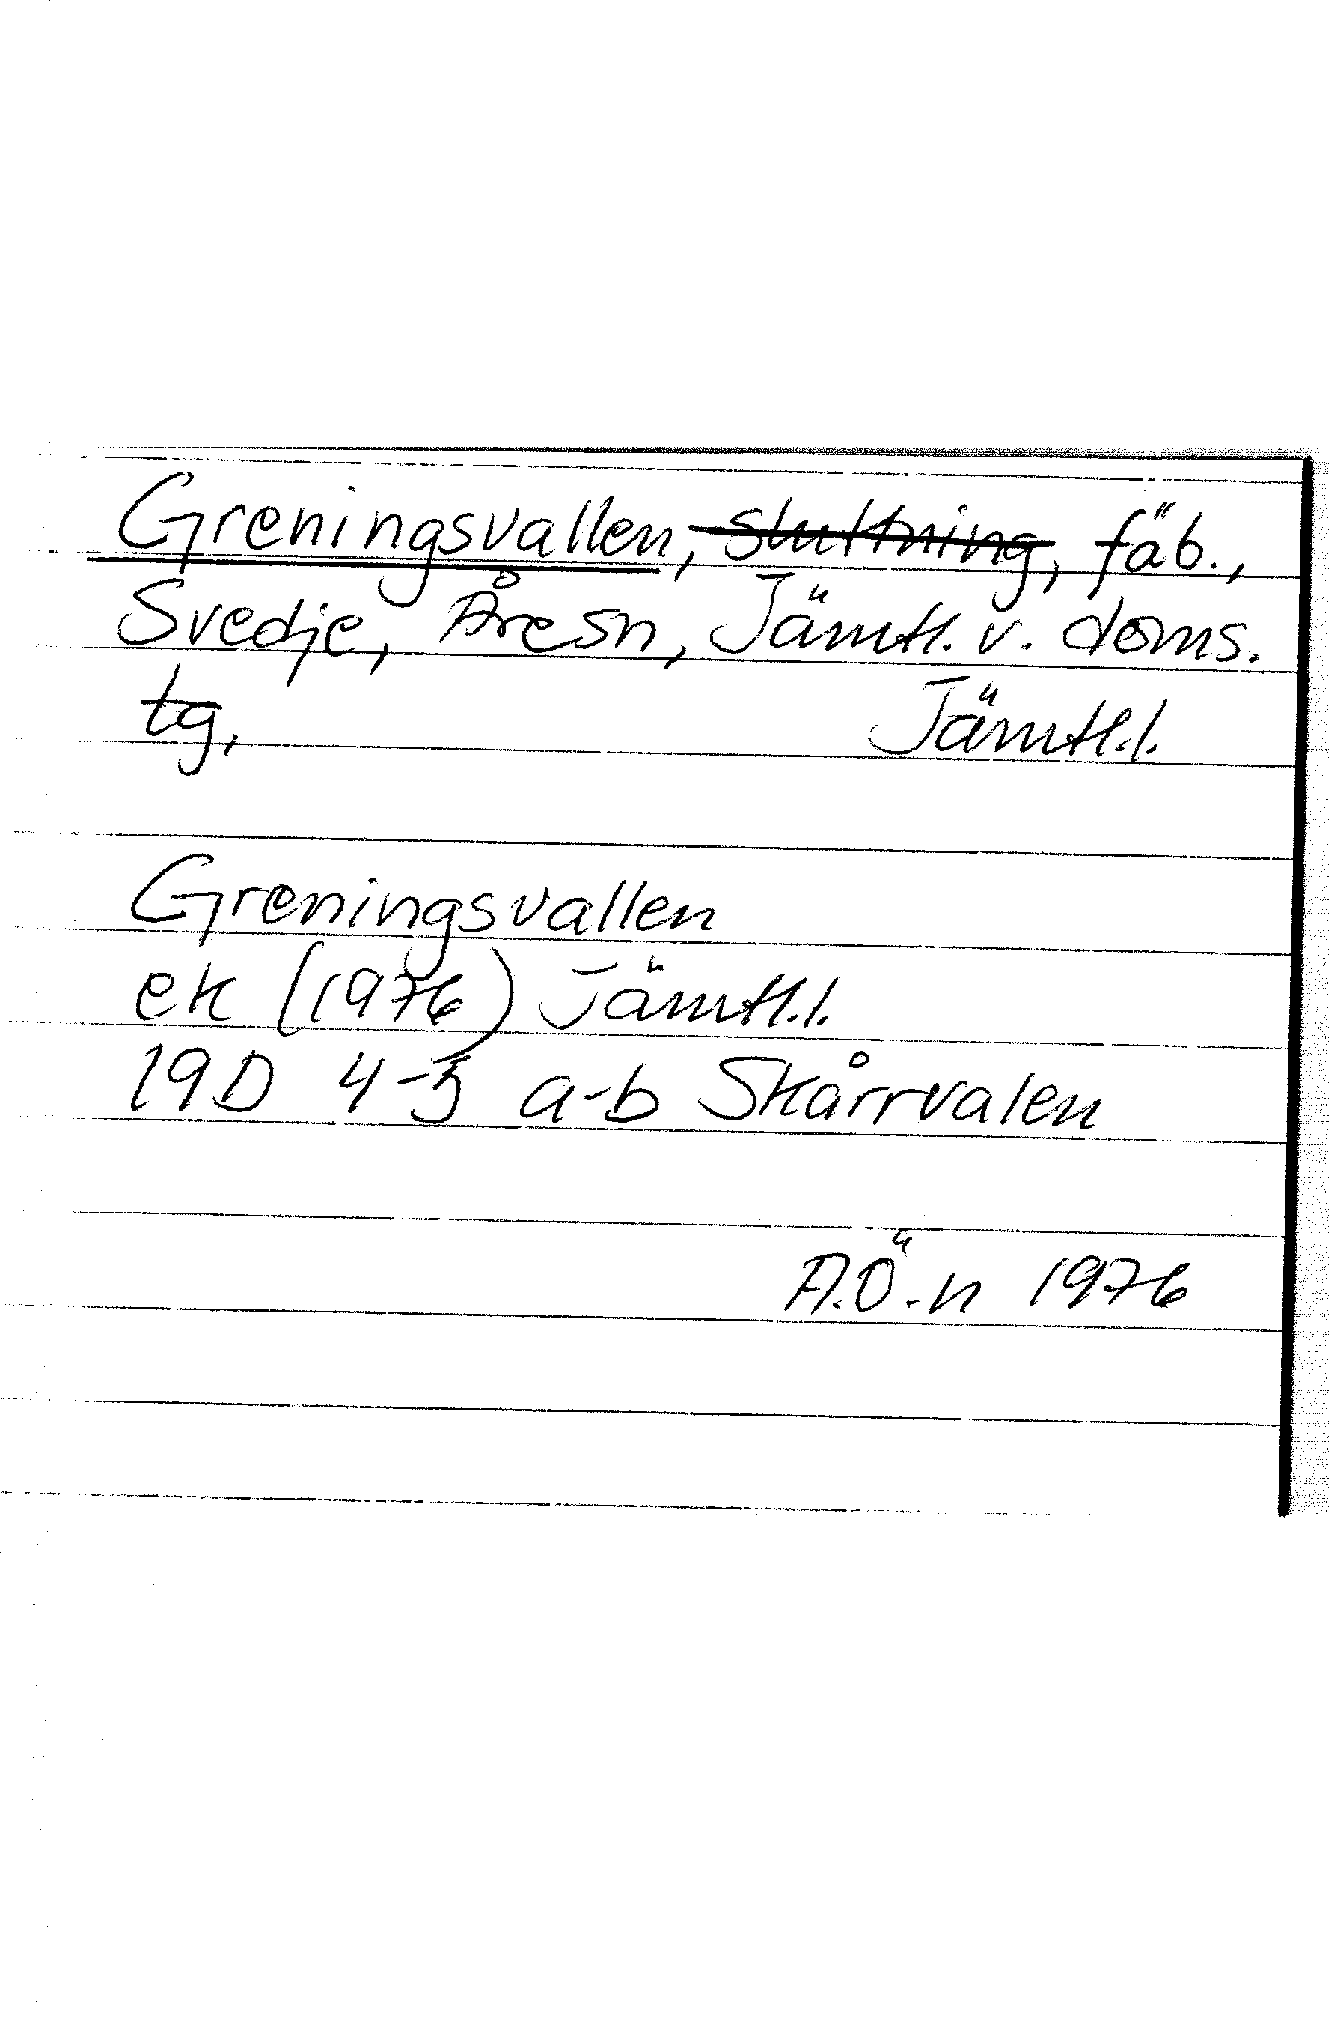 Greningsvallen, sluttning, fäb.,
Svedje, Åresn, Jämtl. v. doms.
tg, Jämtl.l.
Greningsvallen
ek (1976) Jämtl.l.
19D 4-5 a-b Skårrvalen
A.Ö.-n 1976